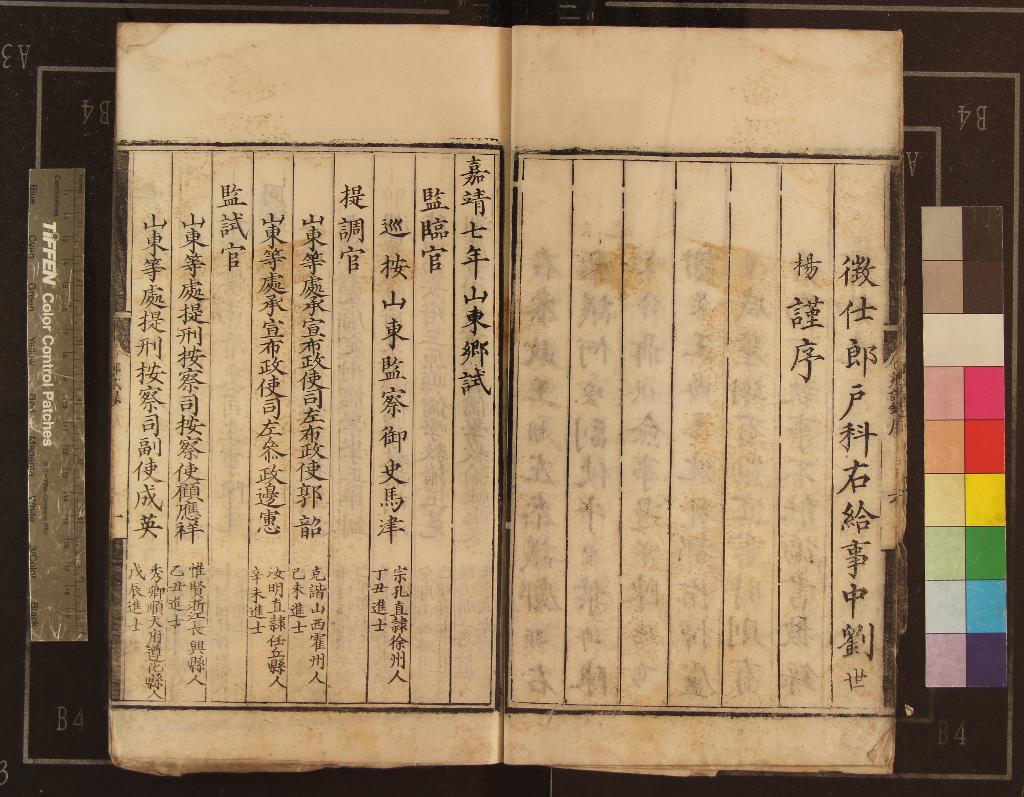 徵仕郎戶科右給事中劉世
楊謹序
嘉靖七年山東鄉試
監臨官
巡按山東監察御史馬津
宗孔直隸徐州人
丁丑進士
提調官
山東等處承宣布政使司左布政使郭韶
克諧山西霍州人
己未進士
山東等處承宣布政使司左叅政邊憲
汝明直隸任丘縣人
辛未進士
監試官
山東等處提刑按察司按察使顧應祥
惟賢浙江長興縣人
乙丑進士
山東等處提刑按察司副使成英
秀卿順天府遵化縣人
戊辰進士
TIFFEN Color Control Patches
Blue
B4
B4
B4
B4
A3